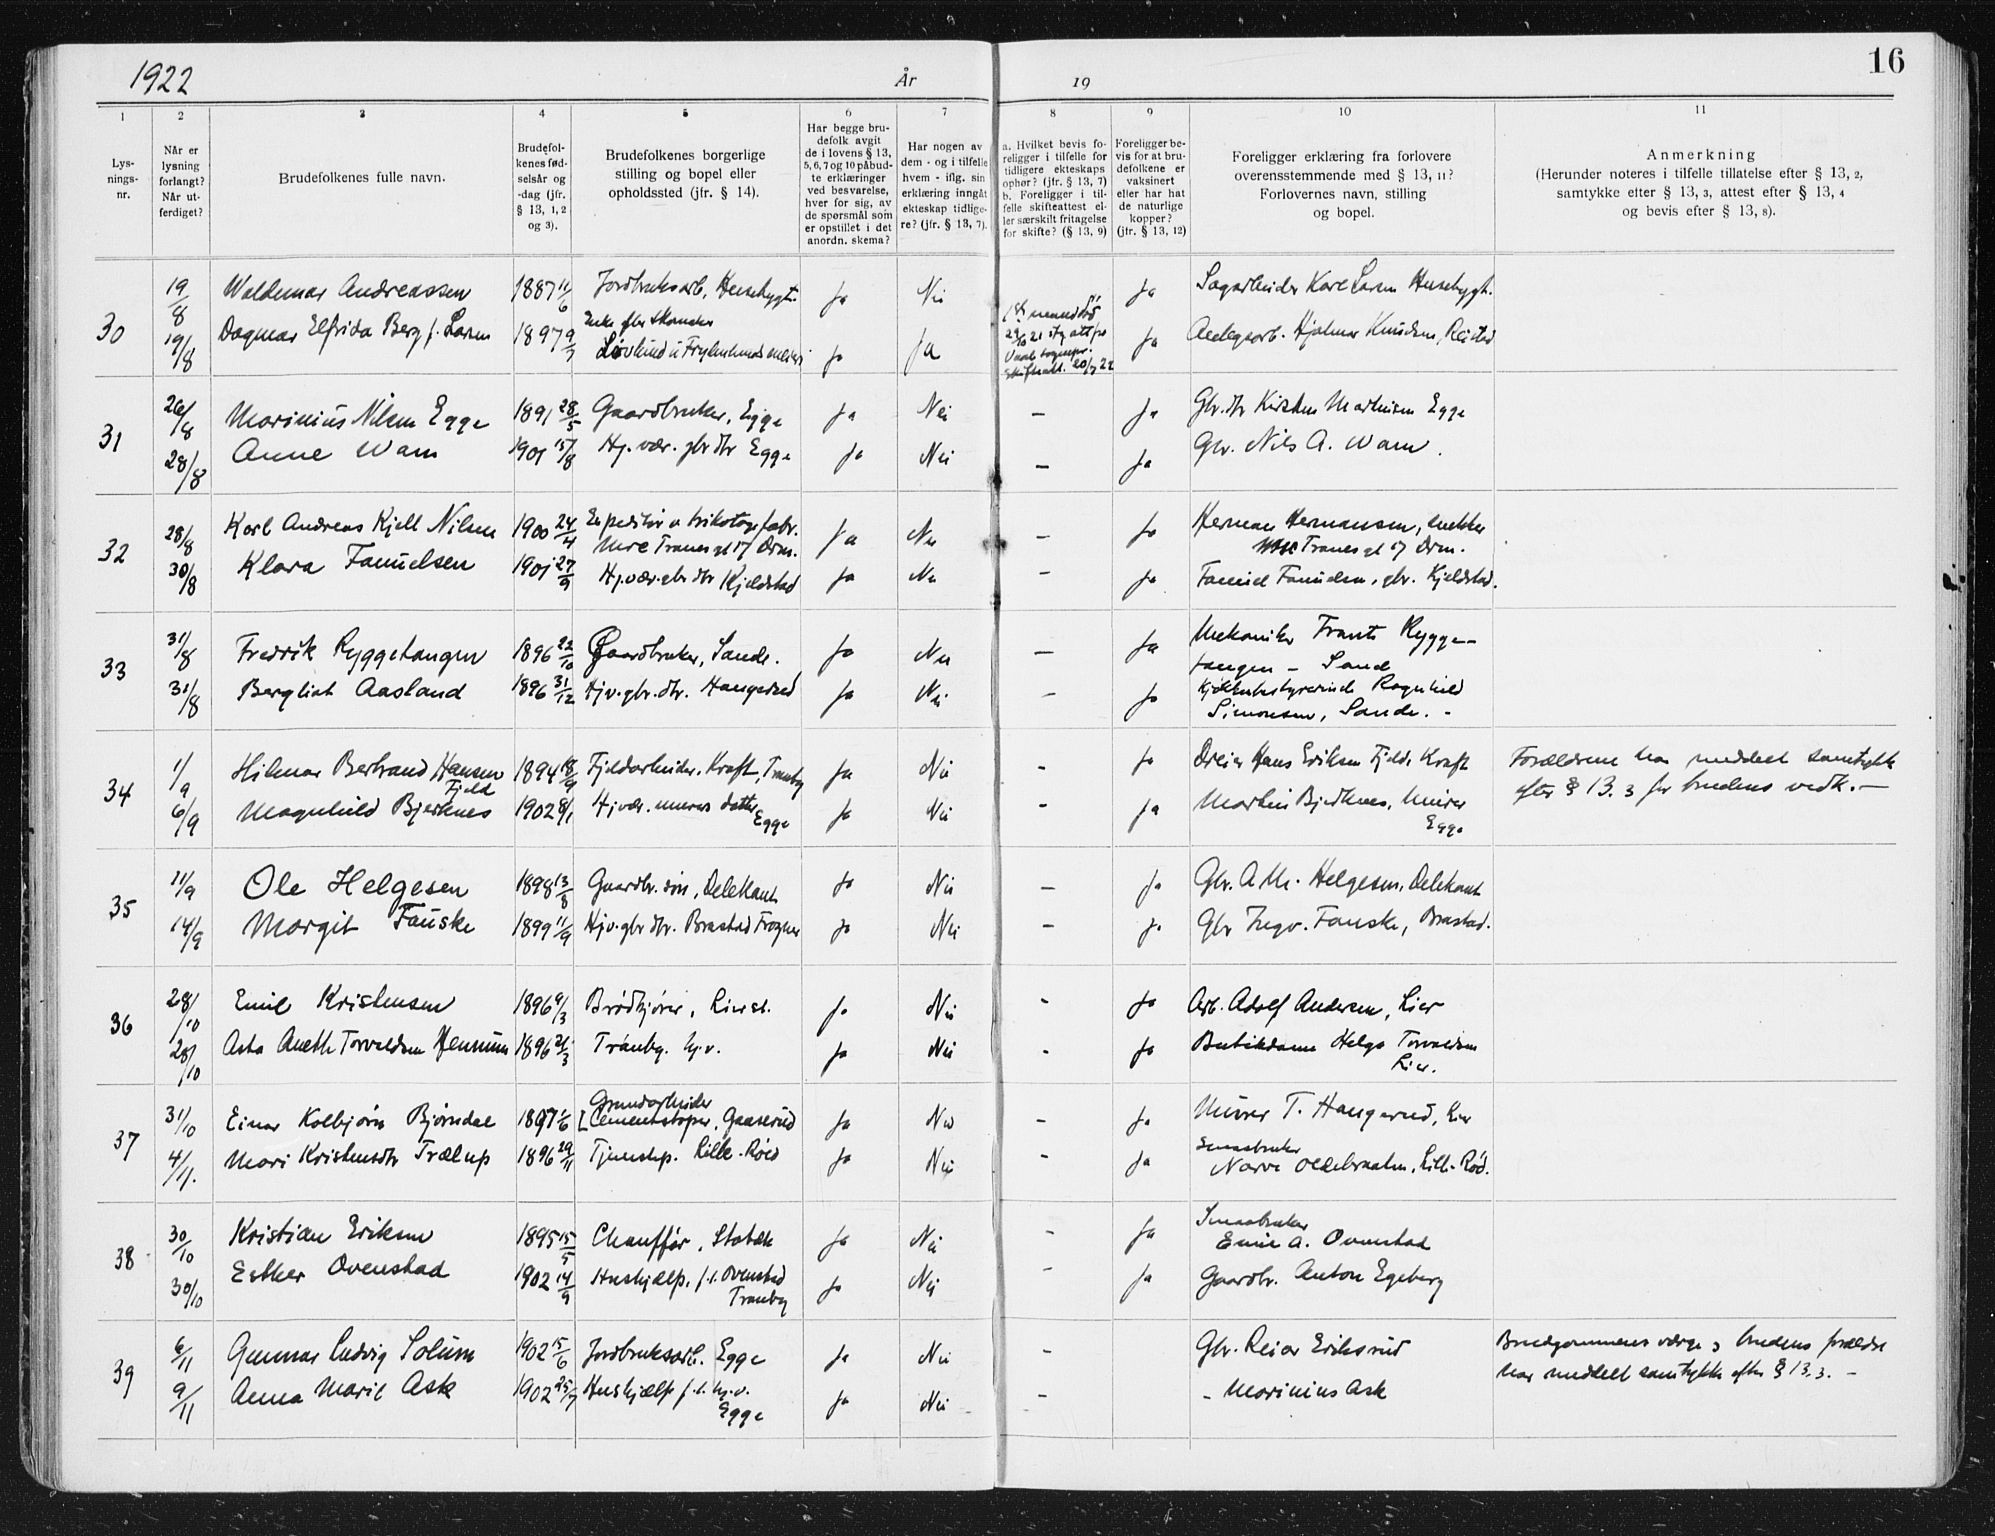 1922 År 19 16
1 2 3 4 5 6 7 8 9 10 11
Lys-
nings-
nr.
Når er
lysning
forlangt?
Når ut-
ferdiget?
Brudefolkenes fulle navn.
Brudefol-
kenes fød-
selsår og
-dag (jfr.
§ 13, 1, 2
og 3).
Brudefolkenes borgerlige
stilling og bopel eller
opholdssted (jfr. § 14).
Har begge bru-
defolk avgit
de i lovens § 13,
5, 6, 7 og 10 påbud-
te erklæringer
ved besvarelse,
hver for sig, av
de spørsmål som
er opstillet i det
anordn. skema?
Har nogen av
dem - og i tilfelle
hvem - iflg. sin
erklæring inngåt
ekteskap tidlige-
re? (jfr. § 13, 7).
a. Hvilket bevis fo-
religger i tilfelle for
tidligere ekteskaps
ophør? (jfr. § 13, 7)
b. Foreligger i til-
felle skifteattest el-
ler særskilt fritagelse
for skifte? (§ 13, 9)
Foreligger be-
vis for at bru-
defolkene er
vaksinert
eller har hat
de naturlige
kopper?
(jfr. § 13, 12)
Foreligger erklæring fra forlovere
overensstemmende med § 13, 11?
Forlovernes navn, stilling
og bopel.
Anmerkning
(Herunder noteres i tilfelle tillatelse efter § 13, 2,
samtykke efter § 13, 3, attest efter § 13, 4
og bevis efter § 13, 8).
30 19/8 Waldemar Andreassen 1887 11/6 Jordbruksarb. Ja Nei Ja Sagarbeider Karl Larsen
19/8 Dagmar Elfrida Berg f. Larsen 1897 9/7 Enke efter Ja Ja Ja Hjalmar Knudsen, Reistad
31 26/8 Marinius Nilsen Egge 1891 28/5 Gaardbruker, Egge Ja Nei — Ja Gbr.dtr Kirsten Martinsen Egge
28/8 Anne Wam 1901 15/8 Hj. vær. gbr dtr Egge Ja Nei — Ja Gbr. Nils A. Wam.
32 28/8 Karl Andreas Kjell Nilsen 1900 24/4 Expeditør v. trikotagefabr. Ja Nei — Ja Herman Hermansen, snekker
Tranes gt 17 Drm. Tranes gt 17 Drm.
30/8 Klara Fanuelsen 1901 27/9 Hj.vær.gbr dtr Kjeldstad Ja Nei — Ja Fanuel Fanuelsen, gbr. Kjeldstad.
33 31/8 Fredrik Ryggetangen 1896 22/10 Gaardbruker, Sande. Ja Nei — Ja Mekaniker Frants Rygge-
tangen – Sande
31/8 Bergliot Aasland 1896 31/12 Hjv. gbr. dtr. Haugerud Ja Nei — Ja Kjøkkenbestyrerinde Ragnhild
Simonsen, Sande. -
34 1/9 Hilmar Bertrand Hansen 1894 18/9 Fjeldarbeider. Kraft, Tranby Ja Nei - Ja Dreier Hans Eriksen Fjeld, Kraft Forældrene har meddelt samtykke
Fjeld efter § 13.3 for brudens vedk. —
6/9 Magnhild Bjerknes 1902 8/1 Hj.vær. murers datter Ja Nei - Ja Martin Bjerknes, Murer
Egge Egge
35 11/9 Ole Helgesen 1898 13/8 Gaardbr. søn, Delekant Ja Nei — Ja Gbr. A. M. Helgesen, Delekant
14/9 Margit Fauske 1899 11/9 Hjv. gbr dtr. Brastad Frogner Ja Nei — Ja Gbr Ingv. Fauske, Brastad.
36 28/10 Emil Kristensen 1896 9/3 Brødkjører, Lier st. Ja Nei - Ja Arb. Adolf Andersen, Lier
28/10 Asta Aneth Torvaldsen Hennum 1896 21/3 Tranby. hj.v. Ja Nei - Ja Butikdame Helga Torvaldsen
Lier.
37 31/10 Einar Kolbjørn Bjørndal 1897 1/6 Grundarbeider Ja Nei - Ja Murer T. Haugerud, Lier
[Cementstøper, Gaaserud
4/11. Mari Kristensdtr Trælup 1896 29/11 Tjenestep. Lille-Røed Ja Nei - Ja Smaabruker
Narve Oldebraaten, Lille-Rød.
38 30/10 Kristian Eriksen 1895 15/5 Chauffør, Stabæk Ja Nei - Ja Smaabruker
Emil A. Ovenstad
30/10 Esther Ovenstad 1902 14/9 Hushjælp. f.t. Ovenstad Ja Nei - Ja Gaardbr. Anton Egeberg
Tranby
39 6/11 Gunnar Ludvig Solum 1902 15/6 Jordbruksarb. Egge Ja Nei - Gbr. Reier Eriksrud Brudgommens værge og brudens forældre
har meddelt samtykke efter § 13.3. -
9/11 Anna Marie Ask 1902 25/7 Hushjælp f.t. hj.v. Ja Nei - - Marinius Ask
Egge